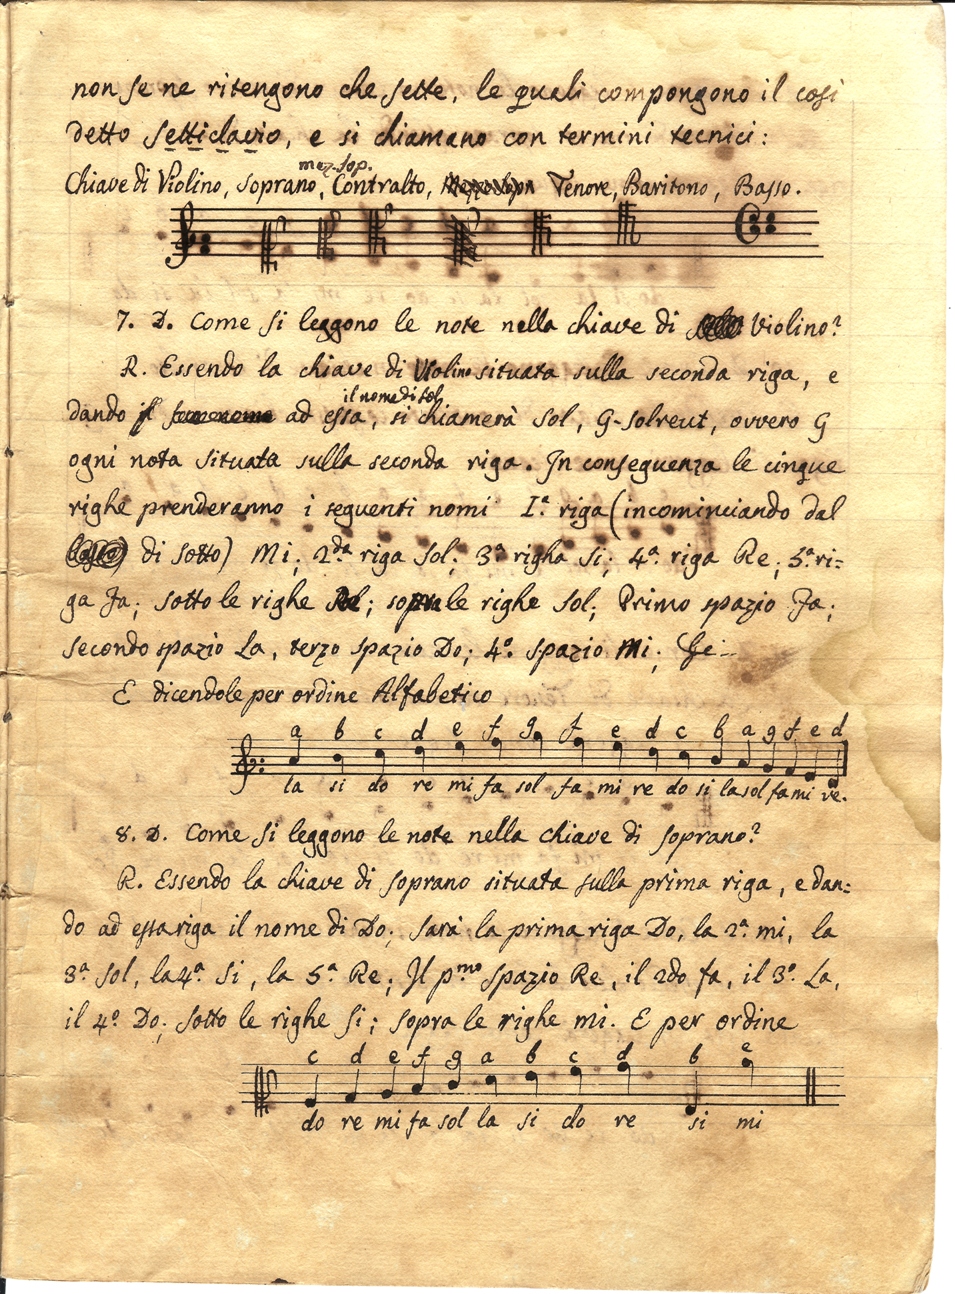 non se ne ritengono che sette, le quali compongono il così
detto setticlavio, e si chiamano con termini tecnici:
mez. sop.
Chiave di Violino, Soprano, Contralto, Mezzo Sopn Tenore, Baritono, Basso.
7. D. Come si leggono le note nella chiave di Violino?
R. Essendo la chiave di Violino situata sulla seconda riga, e
il nome di sol
dando il suo nome ad essa, si chiamerà Sol, G-solreut, ovvero G
ogni nota situata sulla seconda riga. In conseguenza le cinque
righe prenderanno i seguenti nomi Iª. riga (incominciando dal
di sotto) Mi; 2da riga Sol; 3ª righa Si; 4ª. riga Re; 5ª. ri=
ga Fa; sotto le righe Re; sopra le righe Sol; Primo spazio Fa;
secondo spazio La, terzo spazio Do; 4º. spazio Mi;
E dicendole per ordine Alfabetico
a b c d e f g f e d c b a g f e d
la si do re mi fa sol fa mi re do si la sol fa mi re.
8. D. Come si leggono le note nella chiave di soprano?
R. Essendo la chiave di soprano situata sulla prima riga, e dan=
do ad essa riga il nome di Do; sarà la prima riga Do, la 2ª. mi, la
3ª. sol, la 4ª Si, la 5ª. Re; Il pmo spazio Re, il 2do fa, il 3º. La,
il 4º. Do; sotto le righe Si; sopra le righe mi. E per ordine
c d e f g a b c d b e
do re mi fa sol la si do re si mi